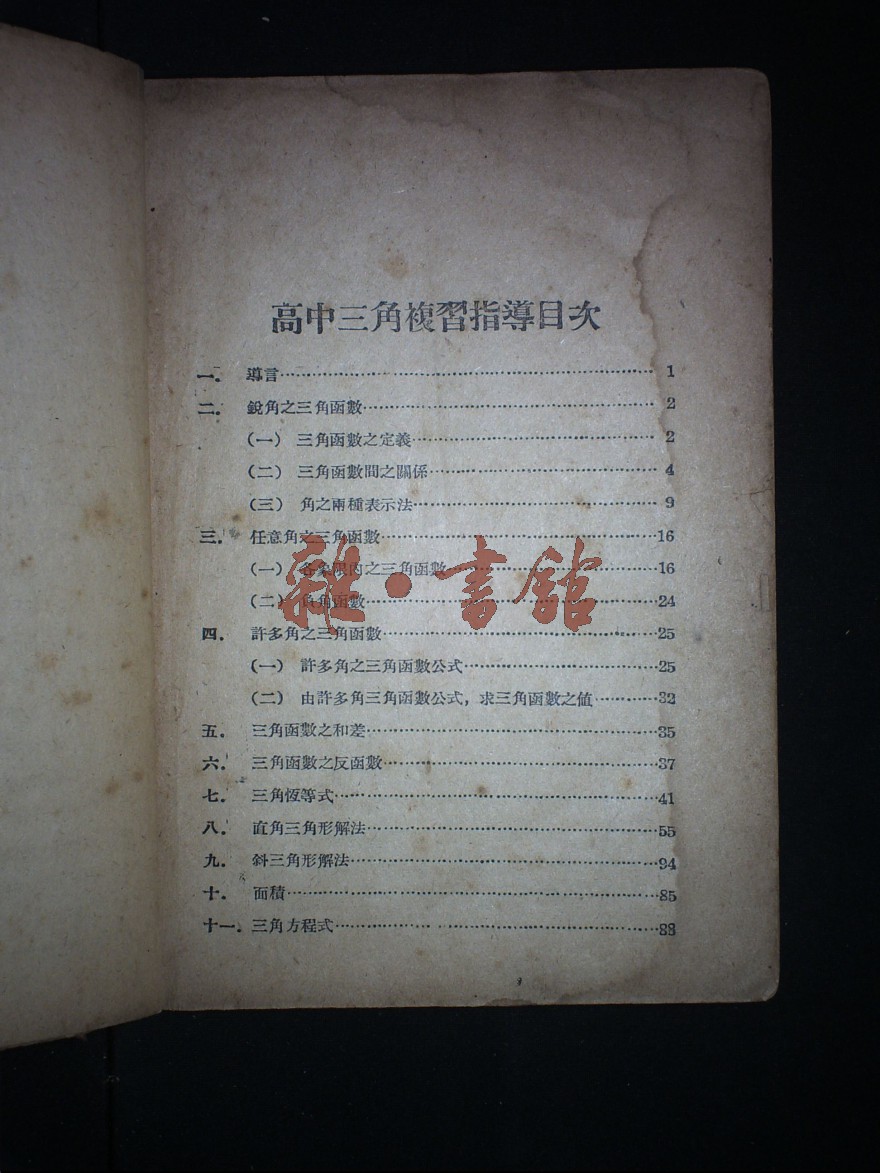 高中三角複習指導目次
一. 導言 1
二. 銳角之三角函數 2
(一) 三角函數之定義 2
(二) 三角函數間之關係 4
(三) 角之兩種表示法 9
三. 任意角之三角函數 16
(一) 各象限內之三角函數 16
(二) 負角函數 24
雜·書館
四. 許多角之三角函數 25
(一) 許多角之三角函數公式 25
(二) 由許多角三角函數公式, 求三角函數之値 32
五. 三角函數之和差 35
六. 三角函數之反函數 37
七. 三角恆等式 41
八. 直角三角形解法 55
九. 斜三角形解法 94
十. 面積 85
十一. 三角方程式 88